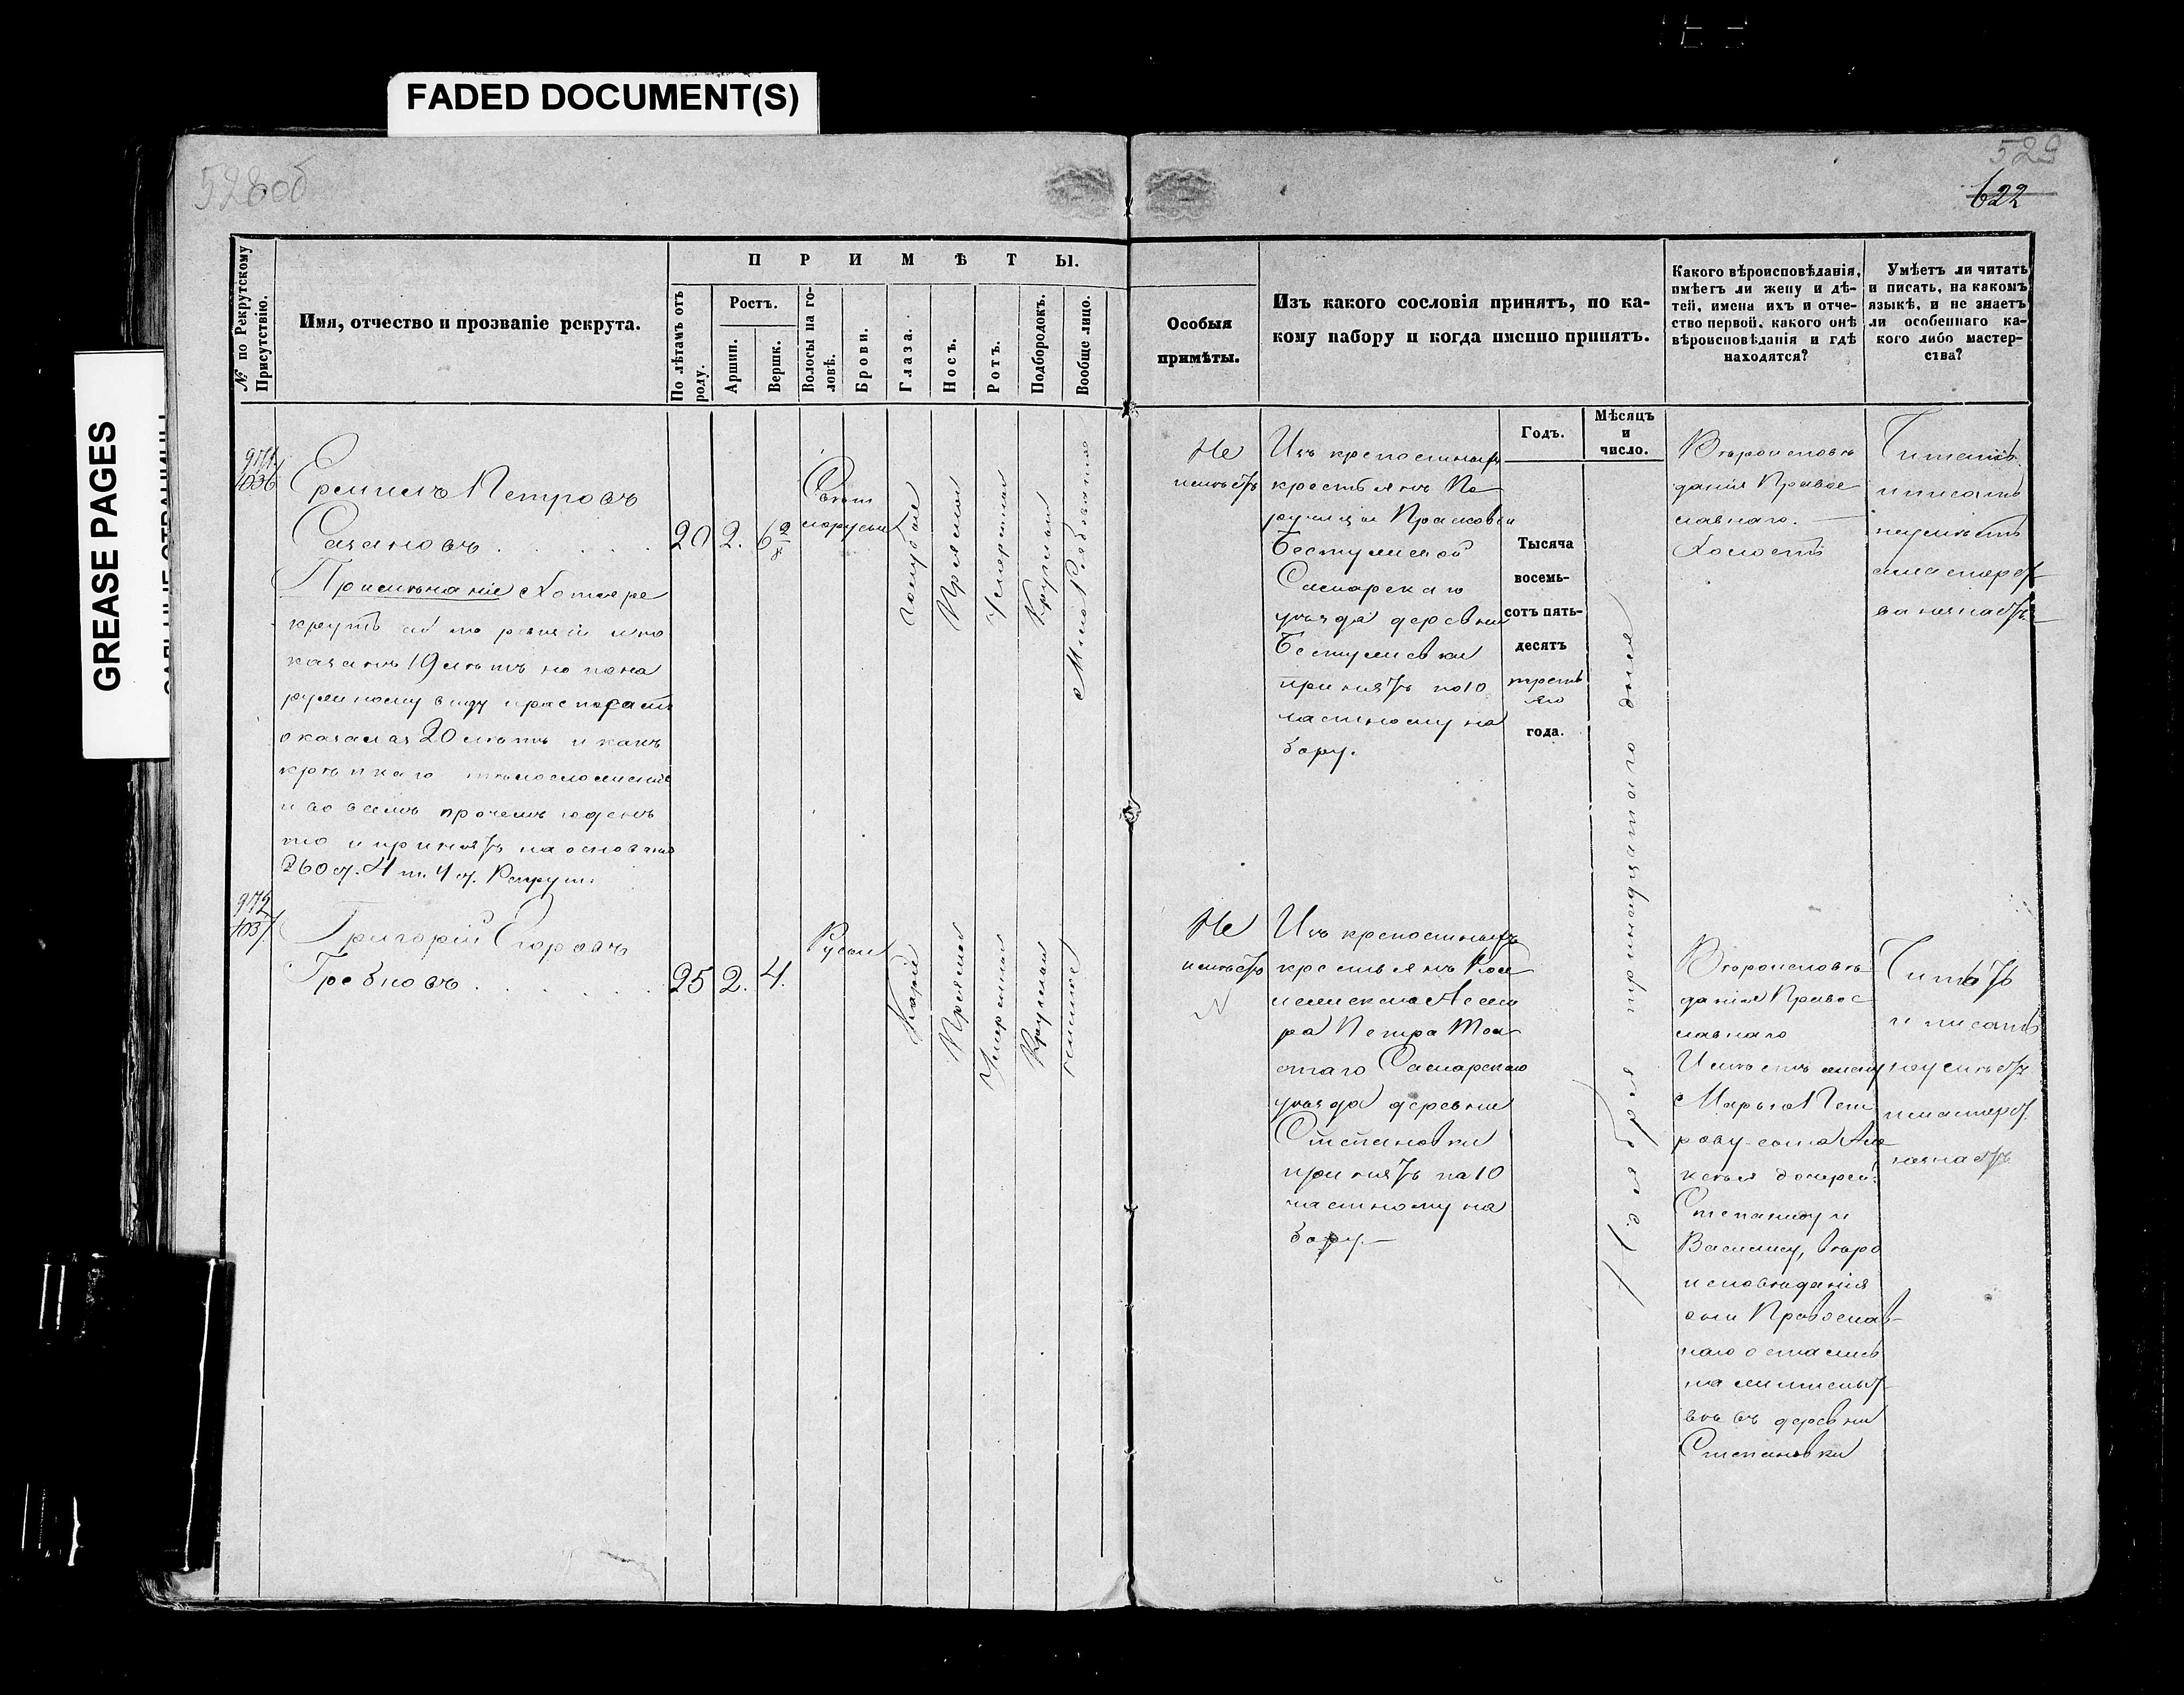 FADED DOCUMENT(S)
GREASE PAGES
528об
529
622
№ по Рекрутскому Присутствію.
Имя, отчество и прозваніе рекрута.
ПРИМѢТЫ.
По лѣтамъ отъ роду.
Ростъ.
Аршин.
Вершк.
Волосы на головѣ.
Брови.
Глаза.
Носъ.
Ротъ.
Подбородокъ.
Вообще лицо.
Особыя
примѣты.
Изъ какого сословія принятъ, по ка-
кому набору и когда именно принятъ.
Годъ.
Мѣсяцъ
и
число.
Какого вѣроисповѣданія,
имѣетъ ли жену и дѣ-
тей, имена ихъ и отче-
ство первой, какого онѣ
вѣроисповѣданія и гдѣ
находятся?
Умѣетъ ли читать
и писать, на какомъ
языкѣ, и не знаетъ
ли особеннаго ка-
кого либо мастер-
ства?
971.
1036
Ермилъ Петровъ
Сазановъ
20 2. 6 2/8
Свѣт
лорусыя
Голубые
Прямой
Умѣренный
Круглый
Малорябоватое
Примѣчаніе Хотя ре
крутъ сей по ревизіи и по
казанъ 19 лѣтъ но по на
ружному виду и распросамъ
оказался 20 лѣтъ и какъ
крѣпкаго тѣлосложенія
и во всемъ прочемъ годенъ
то и принятъ на основаніи
260 ст. 4 т. Уст. Рекрут.
Не
имѣетъ
Изъ крепостныхъ
крестьянъ По
ручицы Прасковьи
Бестужевой
Самарскаго
уѣзда деревни
Бестужевки
принятъ по 10
частному на
бору.
Тысяча
восемь-
сотъ пять-
десятъ
треть
яго
года.
Ноября пятнадцатаго дня
Вѣроисповѣ
данія Правос
лавнаго.
Холостъ
Читать
и писать
неумѣетъ
и мастерст
ва незнаетъ
972
1037.
Григорій Егоровъ
Гребновъ
25 2. 4.
Русыя
Каріе
Прямой
Умѣренный
Круглый
чистое
Не
имѣетъ
Изъ крепостныхъ
крестьянъ Кол
лежскаго Асессо
ра Петра Тол
стаго Самарскаго
уѣзда деревни
Степановки
принятъ по 10
частному на
бору.
Вѣроисповѣ
данія Правос
лавнаго
Имѣетъ жену
Марью Пет
рову сына Але
ксѣя дочерей:
Степаниду и
Василису, вѣро
исповѣданія
они Православ-
наго остались
на жительст
вѣ въ деревни
Степановки
Читать
и писать
неумѣетъ
и мастерст.
незнаетъ